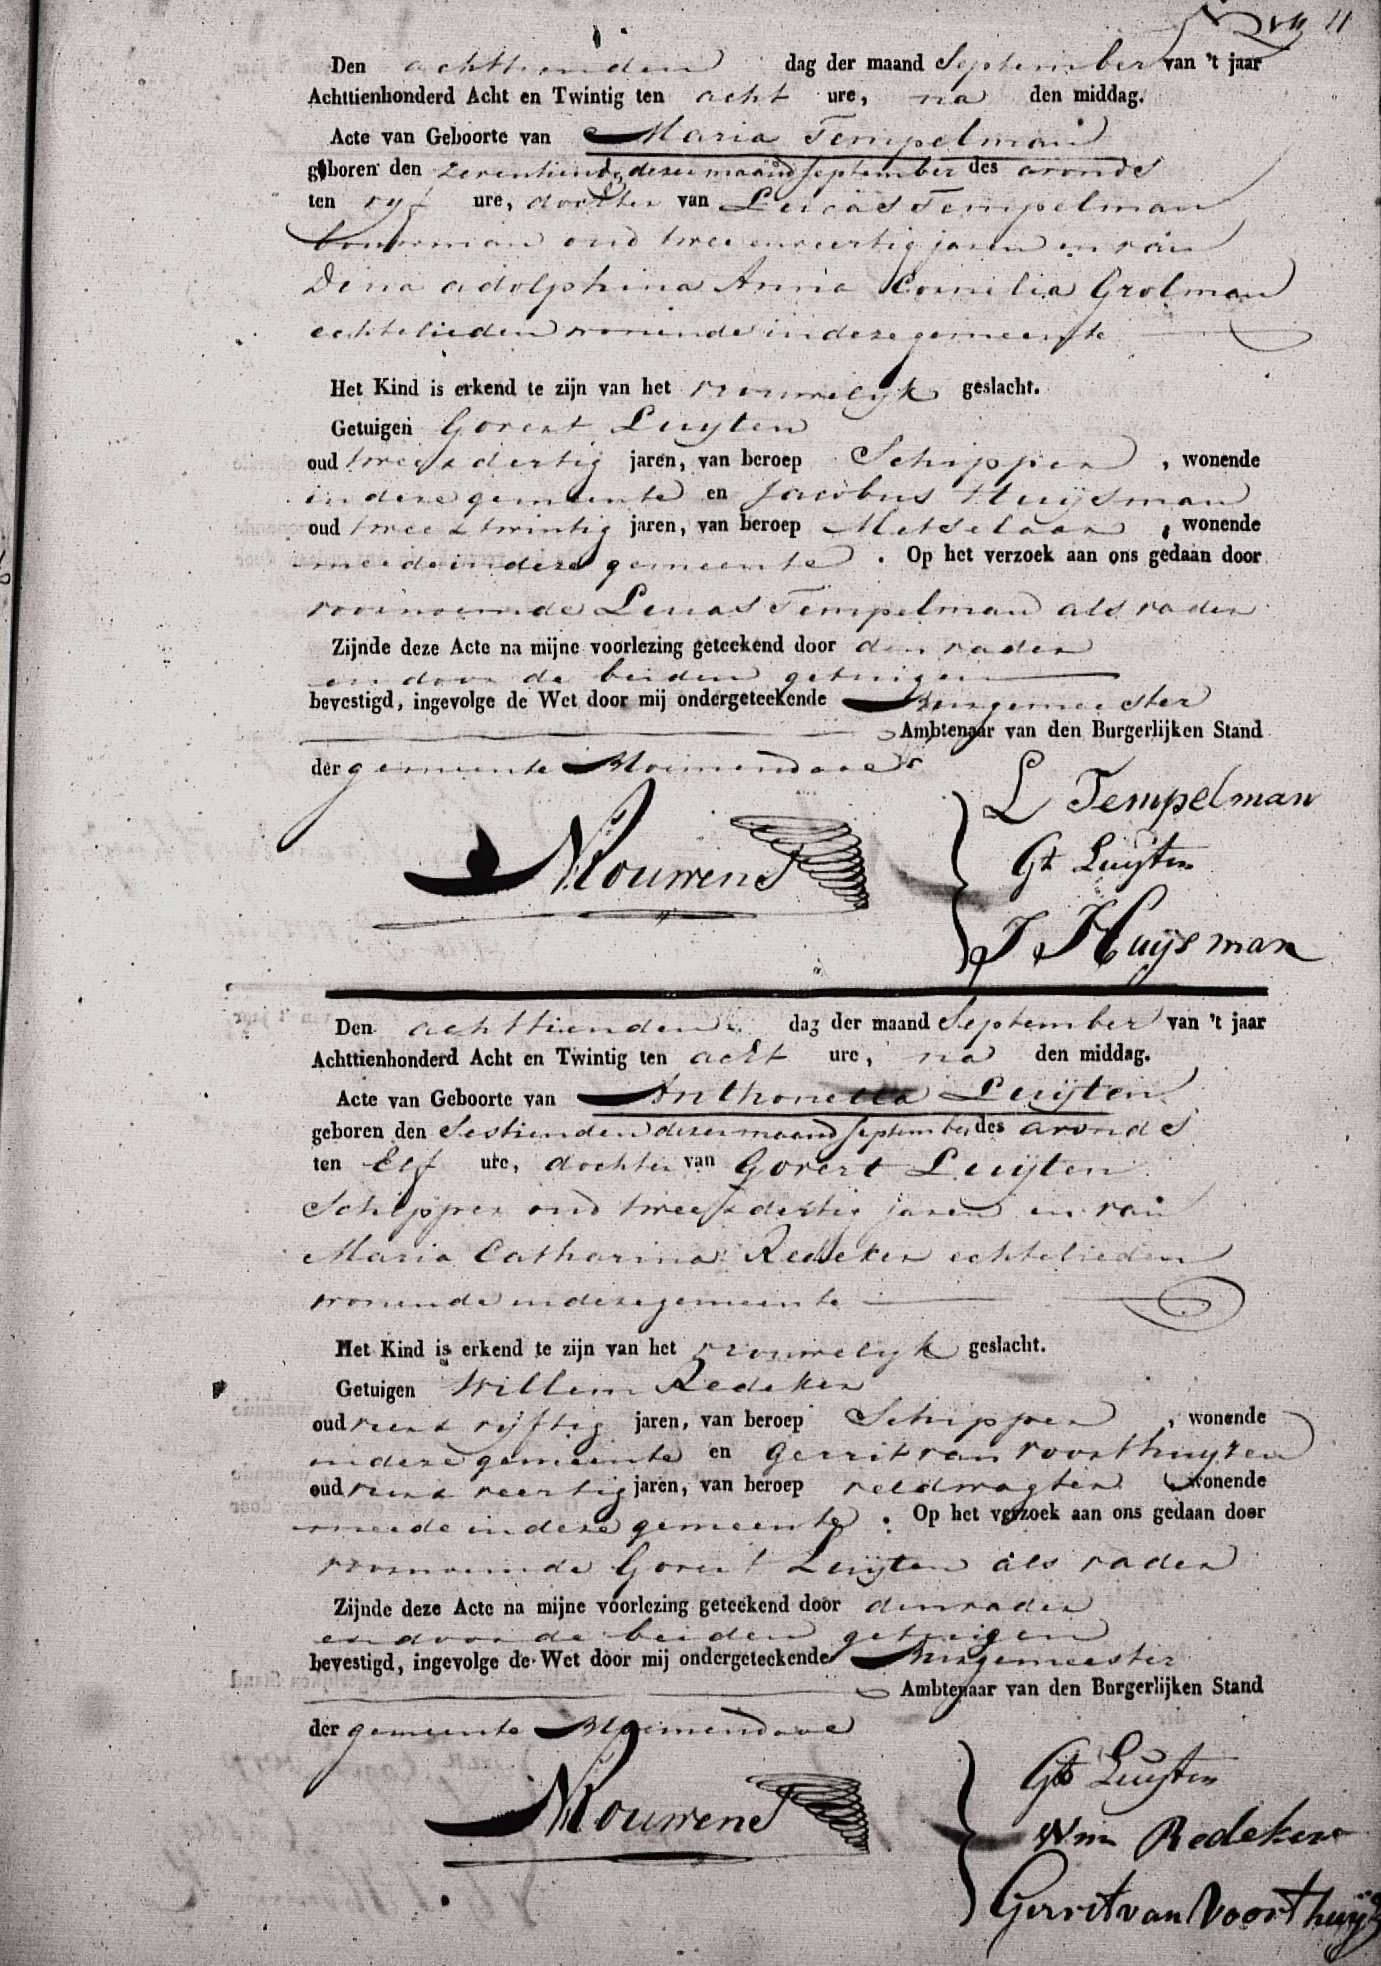 11
Den achttienden dag der maand September van 't jaar
Achttienhonderd Acht en Twintig ten acht ure, na den middag.
Acte van Geboorte van Maria Tempelman
geboren den zeventiende dezer maand september des avonds
ten vyf ure, dochter van Lucas Tempelman
bouwman oud twee en veertig jaren en van
Dina adolphina Anna Cornelia Grolman
echtelieden wonende in deze gemeente
Het Kind is erkend te zijn van het vrouwelyk geslacht.
Getuigen Govert Luyten
oud twee & dertig jaren, van beroep Schipper, wonende
in deze gemeente en Jacobus Huijsman
oud twee & twintig jaren, van beroep Metselaar, wonende
meede in deze gemeente. Op het verzoek aan ons gedaan door
voornoemde Lucas Tempelman als vader
Zijnde deze Acte na mijne voorlezing geteekend door den vader
en door de beiden getuigen
bevestigd, ingevolge de Wet door mij ondergeteekende Burgemeester
Ambtenaar van den Burgerlijken Stand
der gemeente
L Tempelman
Gt Luijten
J Huijsman
Den achttienden dag der maand September van 't jaar
Achttienhonderd Acht en Twintig ten acht ure, na den middag.
Acte van Geboorte van Anthonetta Luijten
geboren den Sestienden dezer maand september des avonds
ten Elf ure, dochter van Govert Luijten
Schipper oud twee & dertig jaren en van
Maria Catharina Redeker echtelieden
wonende in deze gemeente
Het Kind is erkend te zijn van het vrouwelyk geslacht.
Getuigen Willem Redeker
oud & vyftig jaren, van beroep Schipper, wonende
in deze gemeente en Gerrit van voorthuyzen
oud & veertig jaren, van beroep veldwagter wonende
meede in deze gemeente. Op het verzoek aan ons gedaan door
voornoemde Govert Luijten als vader
Zijnde deze Acte na mijne voorlezing geteekend door den vader
en door de beiden getuigen
bevestigd, ingevolge de Wet door mij ondergeteekende Burgemeester
Ambtenaar van den Burgerlijken Stand
der gemeente
Gt Luijten
Wm Redeker
Gerrit van Voorthuijz